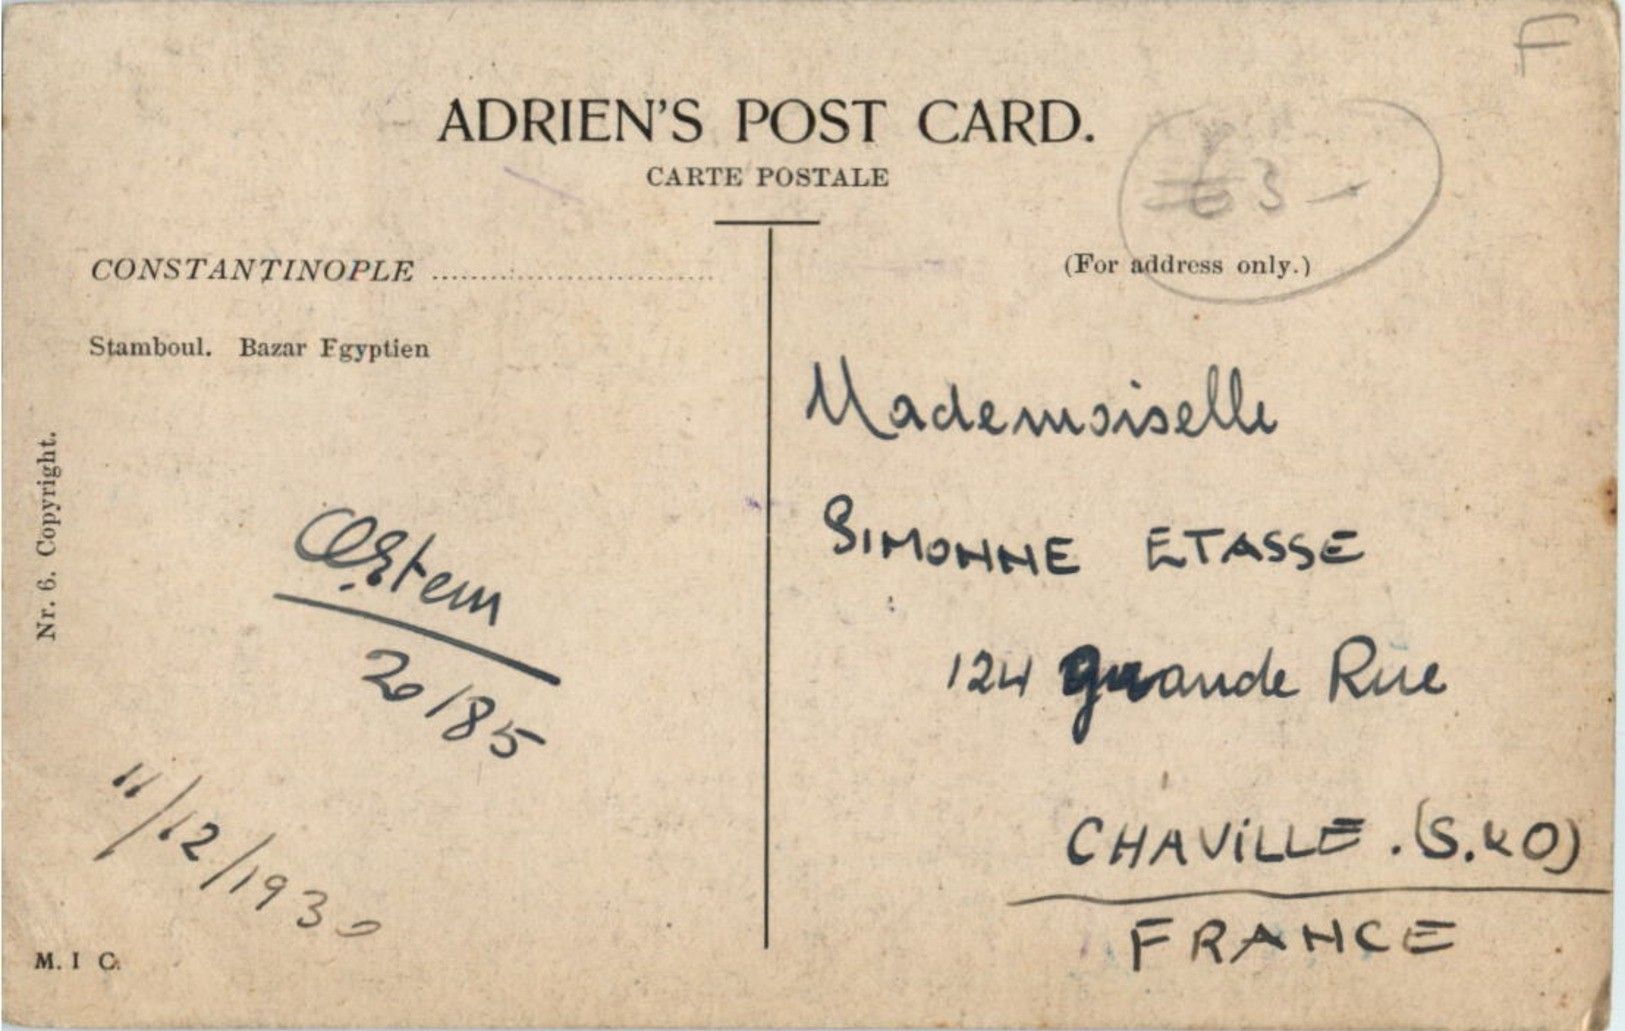 F
ADRIEN'S POST CARD.
CARTE POSTALE
3 -
CONSTANTINOPLE ................................
(For address only.)
Stamboul. Bazar Egyptien
Nr. 6. Copyright.
Mademoiselle
SIMONNE ETASSE
124 grande Rue
CHAVILLE. (S.&O)
FRANCE
20185
11/12/1930
M. I C.